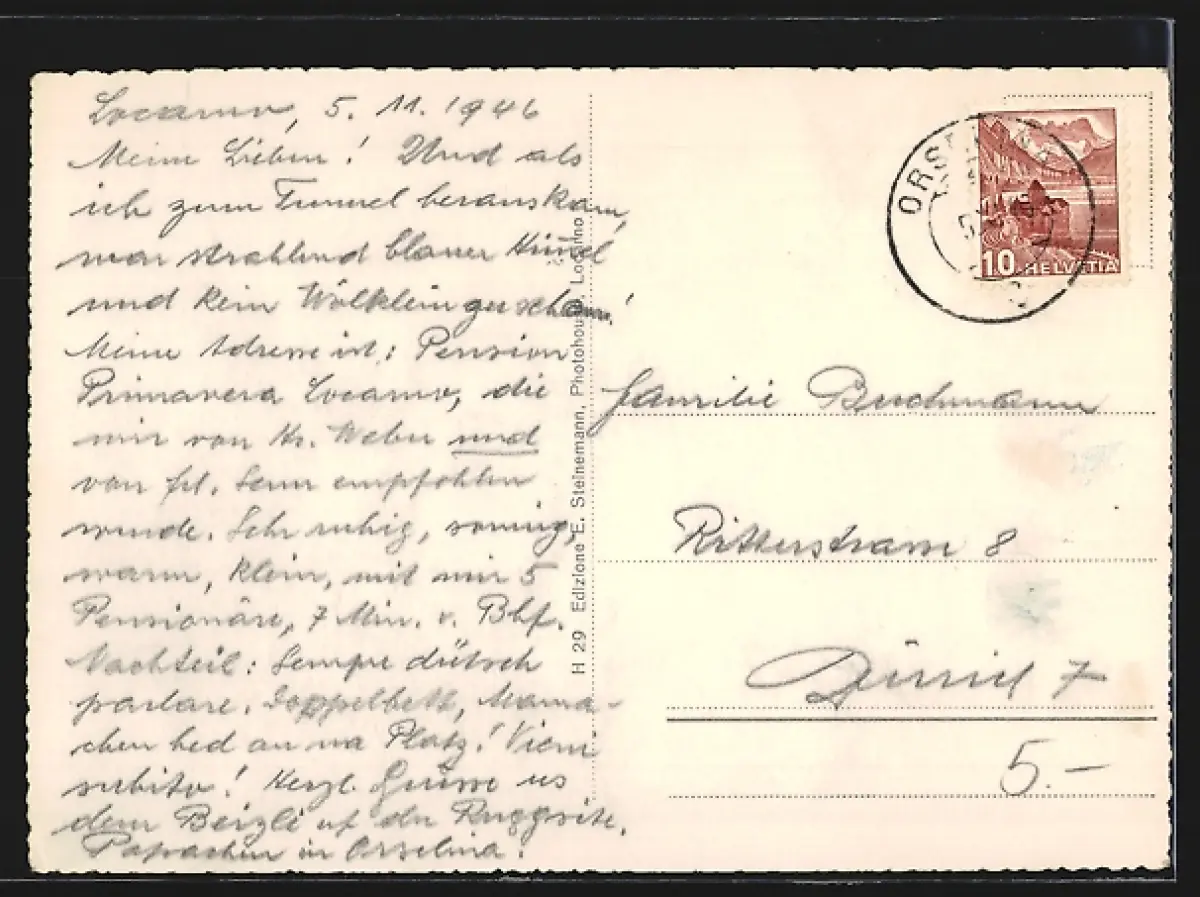 Locarno, 5. 11. 1946
Meine Lieben! Und als
ich zum Tunnel herauskam,
war strahlend blauer Himmel
und kein Wölklein zu schauen!
Meine Adresse ist: Pension
Primavera Locarno, die
mir von Hr. Weber und
von Frl. Senn empfohlen
wurde. Sehr ruhig, sonnig,
warm, klein, mit mir 5
Pensionäre, 7 Min. v. Bhf.
Nachteil: Sempre dütsch
parlare. Doppelbett, Mama-
chen hed au na Platz! Vieni
subito! Herzl. Grüsse us
dem Beizli uf der Ruggsite.
Papachen in Orselina.
H 29 Edizione E. Steinemann, Photohouse, Locarno
ORSELINA
10 HELVETIA
Familie Buchmann
Ritterstrasse 8
Zürich 7
5.-